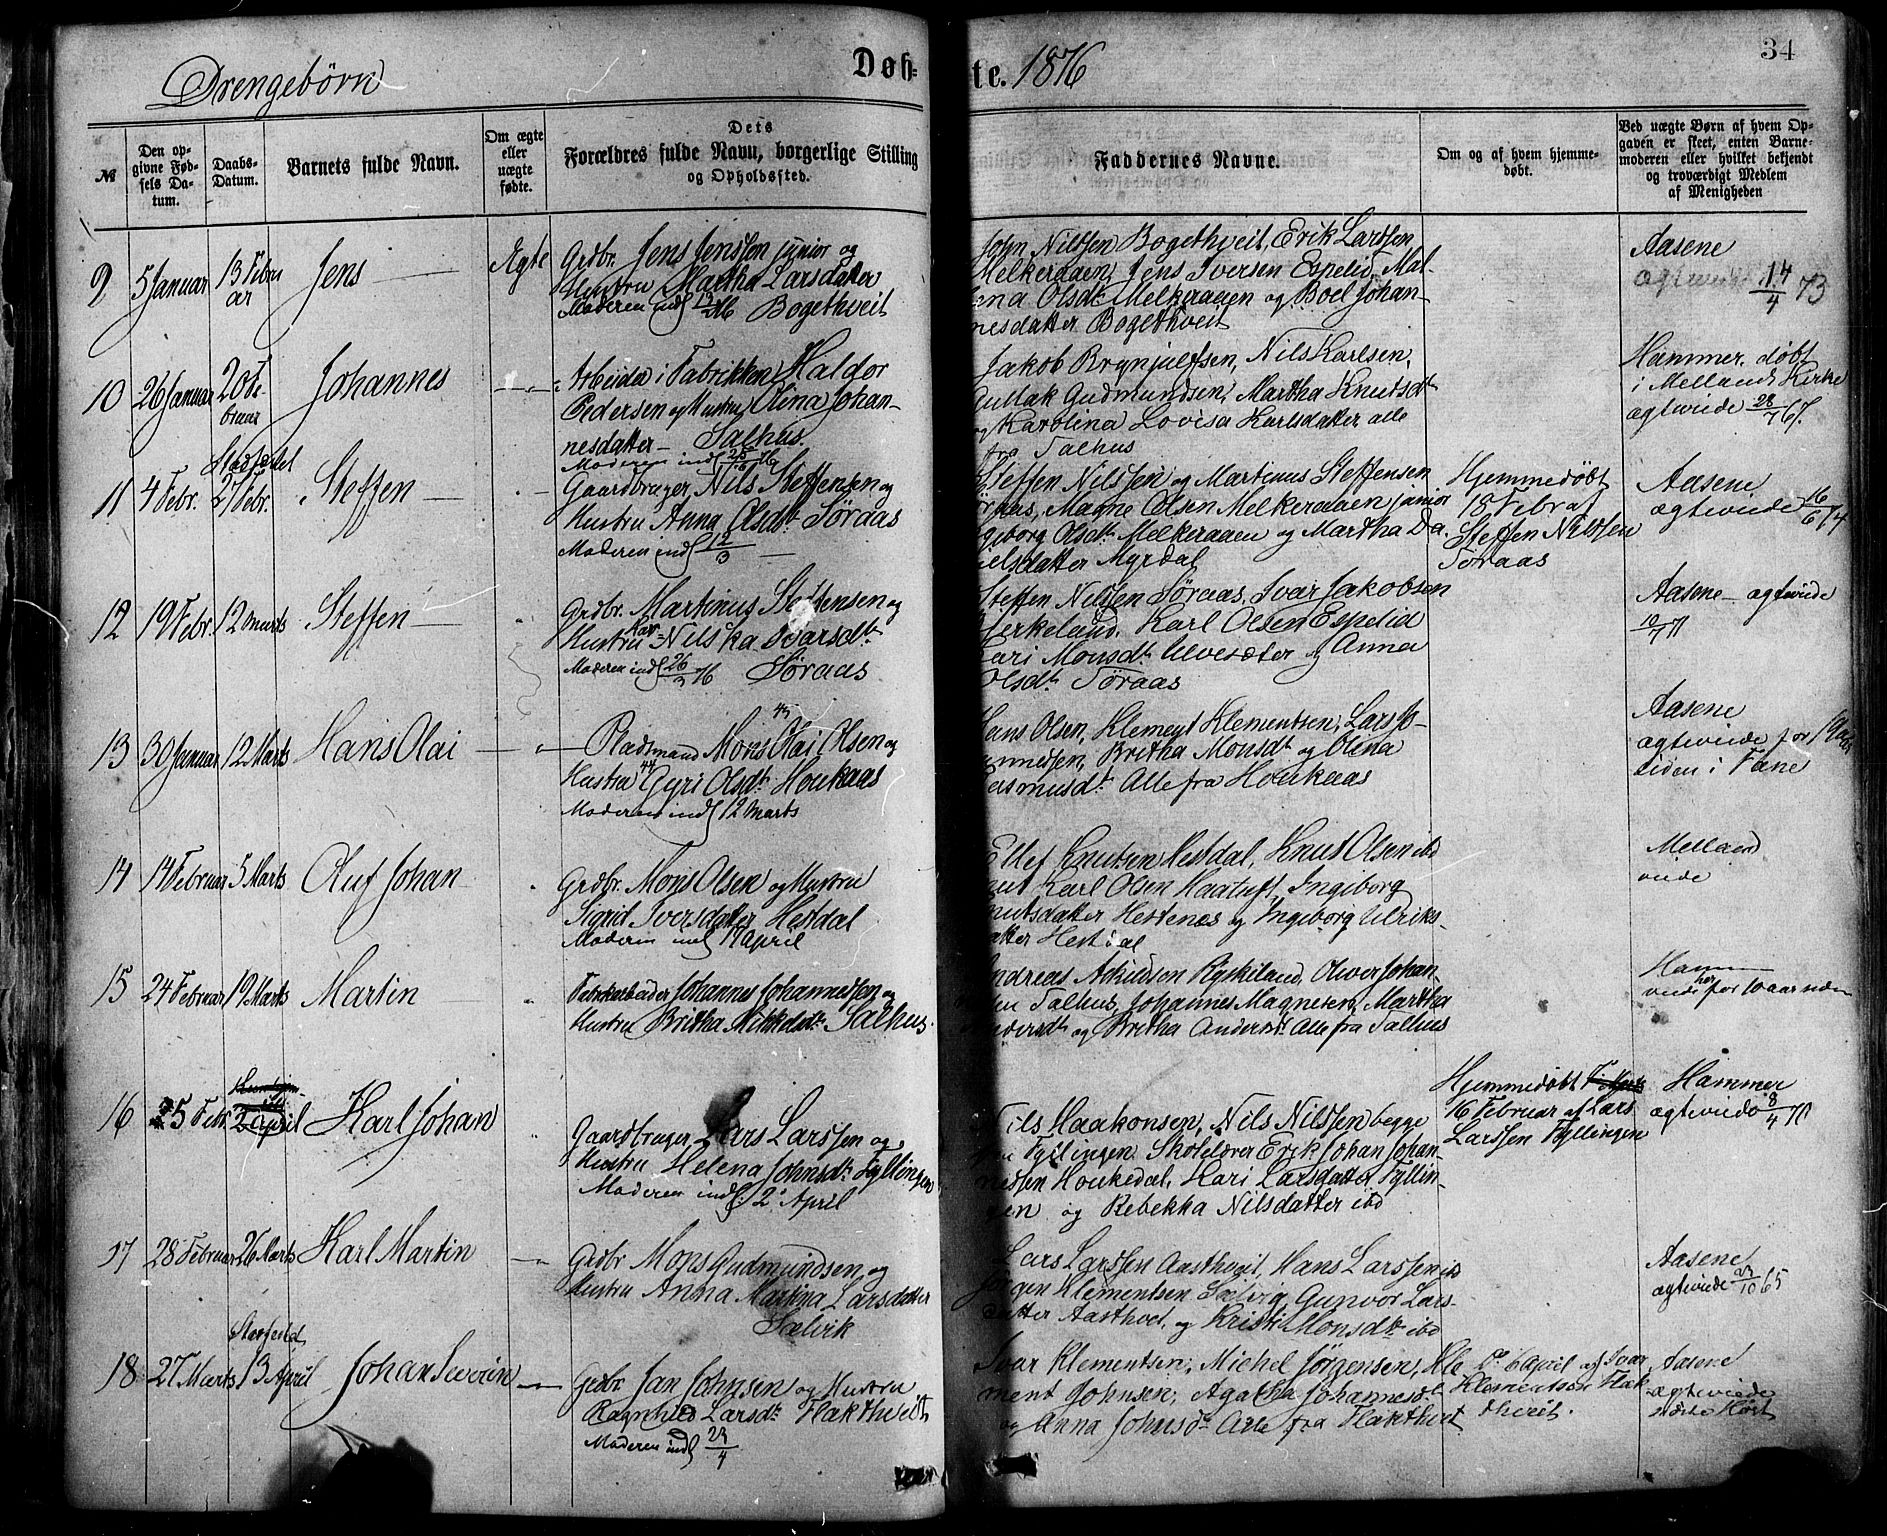 34
Drengebörn
Døb-
te. 1876
№
Den op-
givne Fød-
sels Da-
tum.
Daabs-
Datum.
Barnets fulde Navn.
Om ægte
eller
uægte
fødte.
Dets
Forældres fulde Navn, borgerlige Stilling
og Opholdssted.
Faddernes Navne.
Om og af hvem hjemme-
døbt.
Ved uægte Børn af hvem Op-
gaven er skeet, enten Barne-
moderen eller hvilket bekjendt
og troværdigt Medlem
af Menigheden
9
5 Januar
13 Febru
ar
Jens
Ægte
Grdbr. Jens Jenssen junior og
Hustru Martha Larsdatter
Moderen indl
Bogethveit
John Nilssen Bogethveit, Erik Larssen
Melkeraaen, Jens Iversen Espelid, Mal-
ena Olsdt Melkeraaen og Boel Johan-
nesdatter Bogethveit
Aasene
ægteviede 14/4 73
10
26 Januar
20 Fe-
bruar
Johannes
Arbeider i Fabrikken Haldor
Pedersen og Hustru Olina Johan-
nesdatter – Salhus.
Moderen indl
Jakob Brynjulfsen, Nils Karlsen,
Gullak Gudmundsen, Martha Knutsdt
og Karolina Lovisa Karlsdatter alle
fra Salhus
Hammer, døbt
i Mellands Kirke
ægteviede 28/7 67.
11
4 Febr.
Stadfæstet
27 Febr.
Steffen
Gaardbruger Nils Steffensen og
Hustru Anna Olsdt. Söraas
Moderen indl 12/3
Steffen Nilssen og Martinus Steffensen
Söraas, Magne Olsen Melkeraaen junior
Ingeborg Olsdt. Melkeraaen og Martha Da-
nielsdatter Myrdal
Hjemmedøbt
18 Febr af
Steffen Nilssen
Söraas
Aasene
ægteviede 16/6 74
12
19 Febr.
12 Marts
Steffen
Grdbr. Martinus Steffensen og
Hustru Nilska Ivarsdt
Moderen indl 26/3 76 Söraas
Steffen Nilssen Söraas, Ivar Jakobsen
Birkeland, Karl Olsen Espelid
Kari Monsdt. Ulvesæter og Anna
Olsdt. Söraas
Aasene – ægteviede
10/7 71
13
30 Januar
12 Marts
Hans Olai
Pladsmand Mons Olai Olsen og
Hustru Gyri Olsdt. Houkaas
Moderen indl 12 Marts
Hans Olsen, Klement Klementsen, Lars Jo-
hannessen, Britha Monsdt. og Olina
Rasmusdt. Alle fra Houkaas
Aasene
ægteviede for
siden i Fane
14
14 Februar
5 Marts
Oluf Johan
Grdbr. Mons Olsen og Hustru
Sigrid Iversdatter Hestdal
Moderen indl 17 April
Ellef Knutsen Hestdal, Knut Olsen ibd
Karl Olsen Haatuft, Ingiborg
Knutsdatter Hestenes og Ingiborg Ulriks-
datter Hestdal
Melland
viede
15
24 Februar
19 Marts
Martin
Fabrikarbeider Johannes Johannessen og
Hustru Britha Nikkelsdt. Salhus.
Andreas Askildsen Ryskiland, Oliver Johan-
sen Salhus, Johannes Magnesen, Martha
Andersdt. og Britha Andersdt. Alle fra Salhus
Hammer
viede for 10 aar siden
16
5 Febr.
2 April
Karl Johan
Gaardbruger Lars Larssen og
Hustru Helena Johnsdt. Fyllingen
Moderen indl: 2 April
Nils Haakonsen, Nils Nilssen begge
fra Fyllingen, Skolelærer Erik Johan Johan-
nessen Houkedal, Kari Larsdatter Fyllin-
gen og Rebekka Nilsdatter ibd
Hjemmedøbt
16 Februar af Lars
Larssen Fyllingen
Hammer
ægteviede 8/4 71
17
28 Februar
26 Marts
Karl Martin
Grdbr. Mons Gudmundsen og
Hustru Anna Martina Larsdatter
Sælvik
Lars Larssen Aasthveit, Hans Larssen ibd
Jörgen Klementsen Sælvig, Gunvor Lars-
datter Aasthveit, og Kristi Monsdt. ibd
Aasene
ægteviede 23/10 65
18
27 Marts
Stadfæstet
13 April
Johan Severin
Grdbr. Jan Johnsen og Hustru
Ragnhild Larsdt. Flakthveit
Moderen indl 23/4
Ivar Klementsen, Michel Jörgensen, Kle-
ment Johnsen, Agatha Johannesdt
og Anna Johnsdt. Alle fra Flakthveit
Do 6 April af Ivar
Klementsen Flak-
thveit.
Aasene
ægteviede
sidste Höst